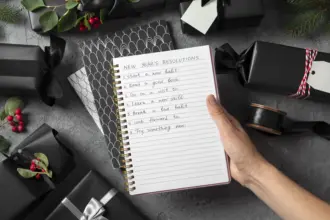 NEW YEARS RESOLUTIONS
1. Start a new habit
2. Read a good book
3. Go on a visit to
4. Learn a new skill
5. Break a bad habit
6.
7. Try something new